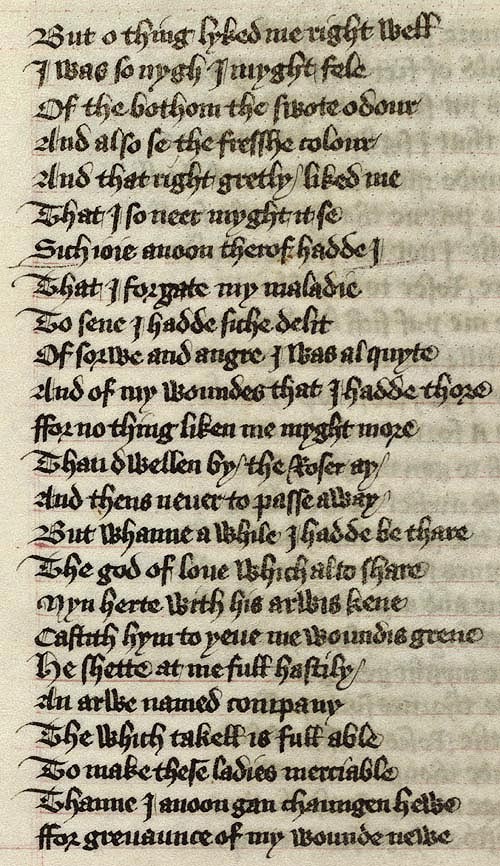 But o thing lyked me right well
I was so nygh I myght fele
Of the bothom the swote odour
And also se the fresshe colour
And that right gretly / liked me
That I so neer myght it se
Sich ioie anoon therof hadde I
That I forgate my maladie
To sene I hadde siche delit
Of sorwe and angre I was al quyte
And of my woundes that I hadde thore
ffor no thing liken me myght more
Than dwellen by / the Roser ay /
And thens neuer to passe away
But whanne a while I hadde be thare
The god of loue which al to share
Myn herte with his arwis kene
Castith hym to yeue me woundis grene
He shette at me full hastily /
An arwe named company
The which takell is full able
To make these ladies merciable
Thanne I anoon gan chaungen hewe
ffor greuaunce of my wounde newe